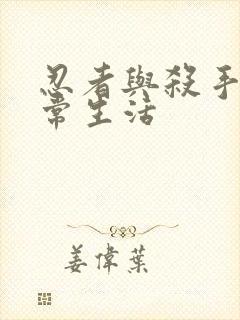 忍者與殺手
常生活
姜偉葉